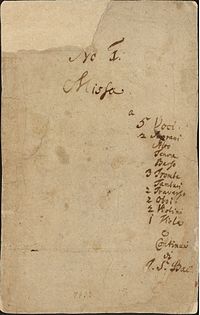 No I.
Missa.
a
5 Voci.
2 Soprani
Alto
Tenore
Basso
3 Trombe
Tamburi
2 Traversi
2 Oboi
2 Violini
1 Viola
e
Continuo
di
J. S. Bac